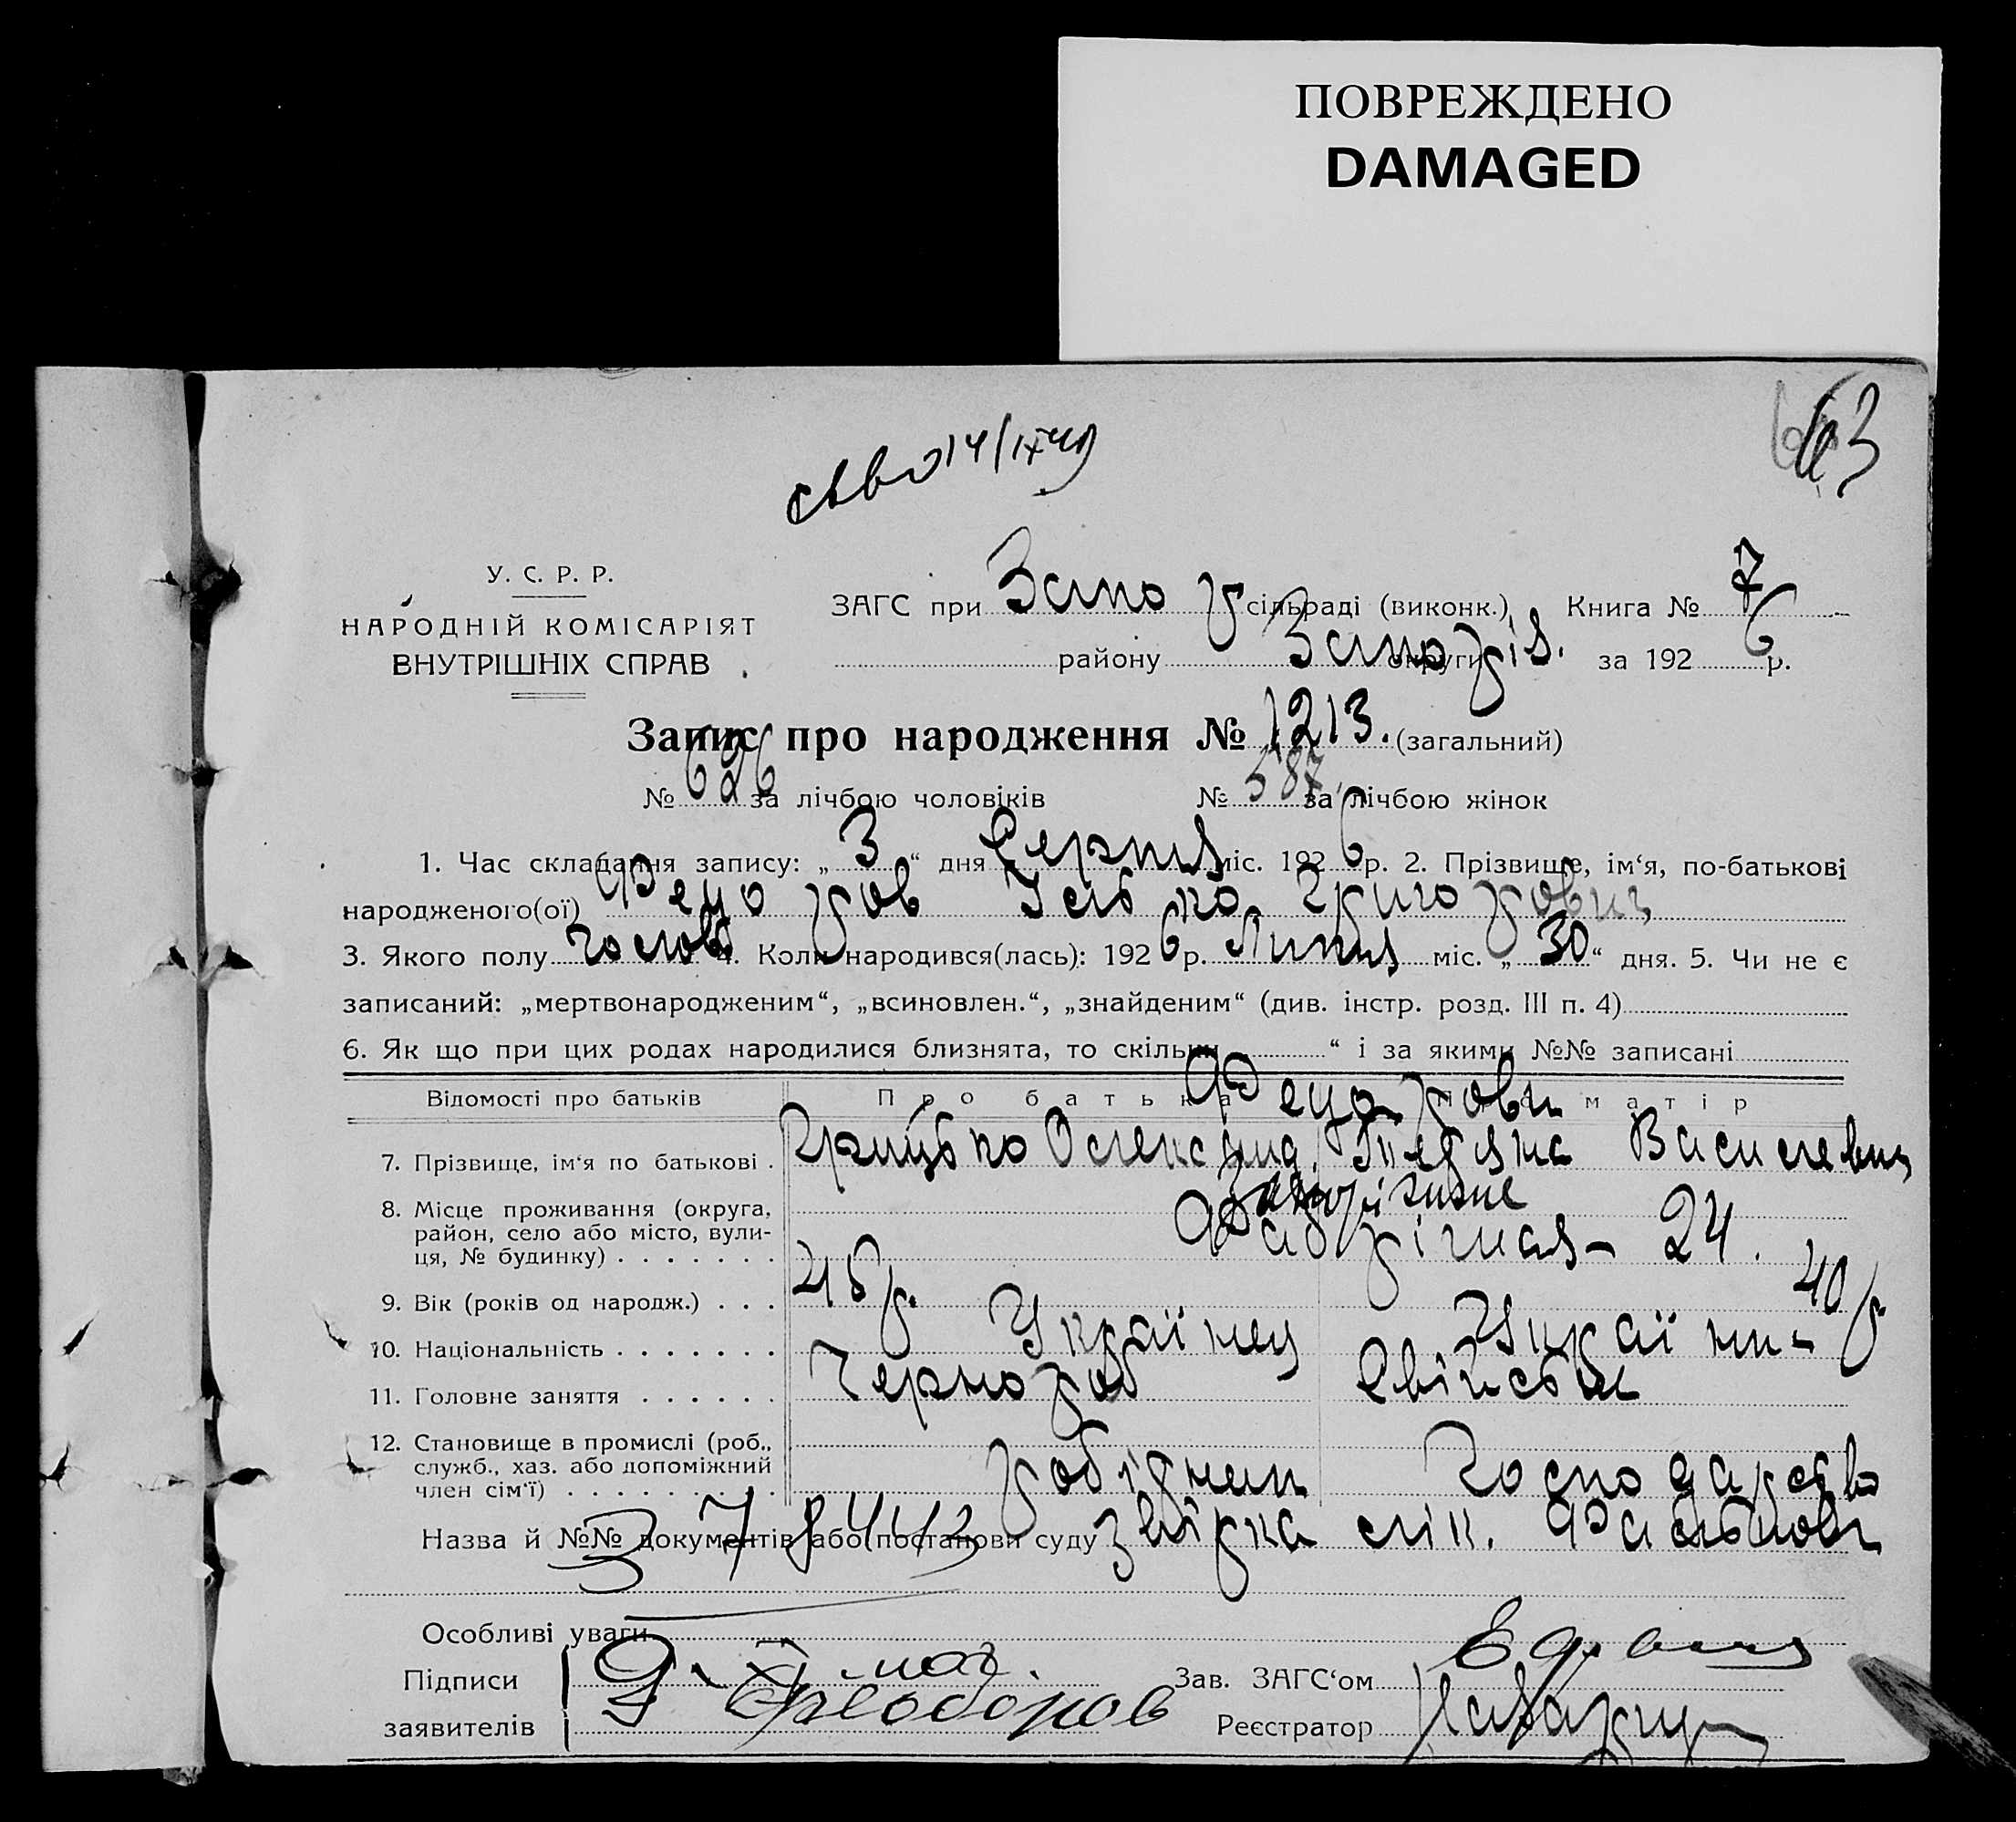 ПОВРЕЖДЕНО
DAMAGED
У. С. Р. Р.
НАРОДНІЙ КОМІСАРІЯТ
ВНУТРІШНІХ СПРАВ
ЗАГС при Запо р сільраді (виконк.) Книга № 7
району Запоріз. округи за 1926 р.
Запис про народження № 1213. (загальний)
№ 626 за лічбою чоловіків № 587 за лічбою жінок
1. Час складання запису: „3“ дня Серпня міс. 1926 р. 2. Прізвище, ім‘я, по-батькові
народженого(ої) Федоров Григоров
3. Якого полу чолов 4. Коли народився(лась): 1926 р. Липня міс. „30“ дня. 5. Чи не є
записаний: „мертвонародженим“, „всиновлен.“, „знайденим“ (див. інстр. розд. III п. 4)
6. Як що при цих родах народилися близнята, то скільки “ і за якими №№ записані
Відомості про батьків Про батька Про матір
Федорови
7. Прізвище, ім‘я по батькові . Грицько Олександ. Тетяна Василевн
8. Місце проживання (округа,
район, село або місто, вули-
ця, № будинку) Запоріжжє
Фабрічная - 24.
9. Вік (років од народж.) . . . 45 р. 40 р
10. Національність Українец Украї нк-
11. Головне заняття Чернороб Свійське
12. Становище в промислі (роб.,
служб., хаз. або допоміжний
член сім‘ї) робітник господарство
Назва й №№ документів або постанови суду звірка лік.
378443
Особливі уваги
Підписи
заявителів Феодоров
Зав. ЗАГС‘ом
Реєстратор